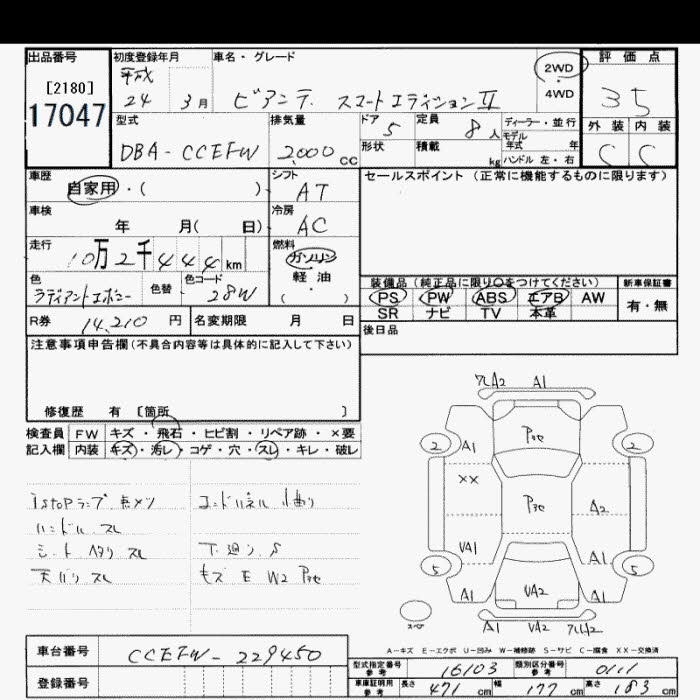 出品番号 初度登録年月 車名・グレード 2WD・4WD 評価点
[2180] 平成
17047 24 3月 ビアンテ スマートエディションII 35
型式 排気量 ドア 定員 ディーラー・並行 外装 内装
DBA-CCEFW 2,000cc 5 8人 モデル年式 年 C C
形状 積載 kg ハンドル 左・右
車歴 シフト セールスポイント (正常に機能するものに限ります)
自家用・( ) AT
車検 冷房
年 月( 日) AC
走行 燃料
10万2千444km ガソリン・軽油
色 色替 色コード ( ・ )
ラディアントエボニー 28W
装備品(純正品に限り○をつけてください) 新車保証書
PS PW ABS エアB AW 有・無
SR ナビ TV 本革
R券 14,210円 名変期限 月 日 後日品
注意事項申告欄(不具合内容等は具体的に記入して下さい)
修復歴 有 〔箇所 〕
検査員 FW キズ・飛石・ヒビ割・リペア跡・×要
記入欄 内装 キズ・汚レ・コゲ・穴・スレ・キレ・破レ
istopランプ点メツ
ハンドル スレ
シート ヘタリ スレ
天バリ スレ
コードパネル 小曲り
下廻り S
キズ E W2 Pテ
フレA2 A1
2 A1 Pテ 2
XX Pテ A2
VA1 A1
5 VA2 5
A1 A1
スペア A1 VA2 フレA2
A-キズ E-エクボ U-凹み W-補修跡 S-サビ C-腐食 XX-交換済
車台番号 CCEFW-229450
型式指定番号 参考 16103 類別区分番号 参考 0111
登録番号 車庫証明用 参考 長さ 471cm 幅 177cm 高さ 183cm